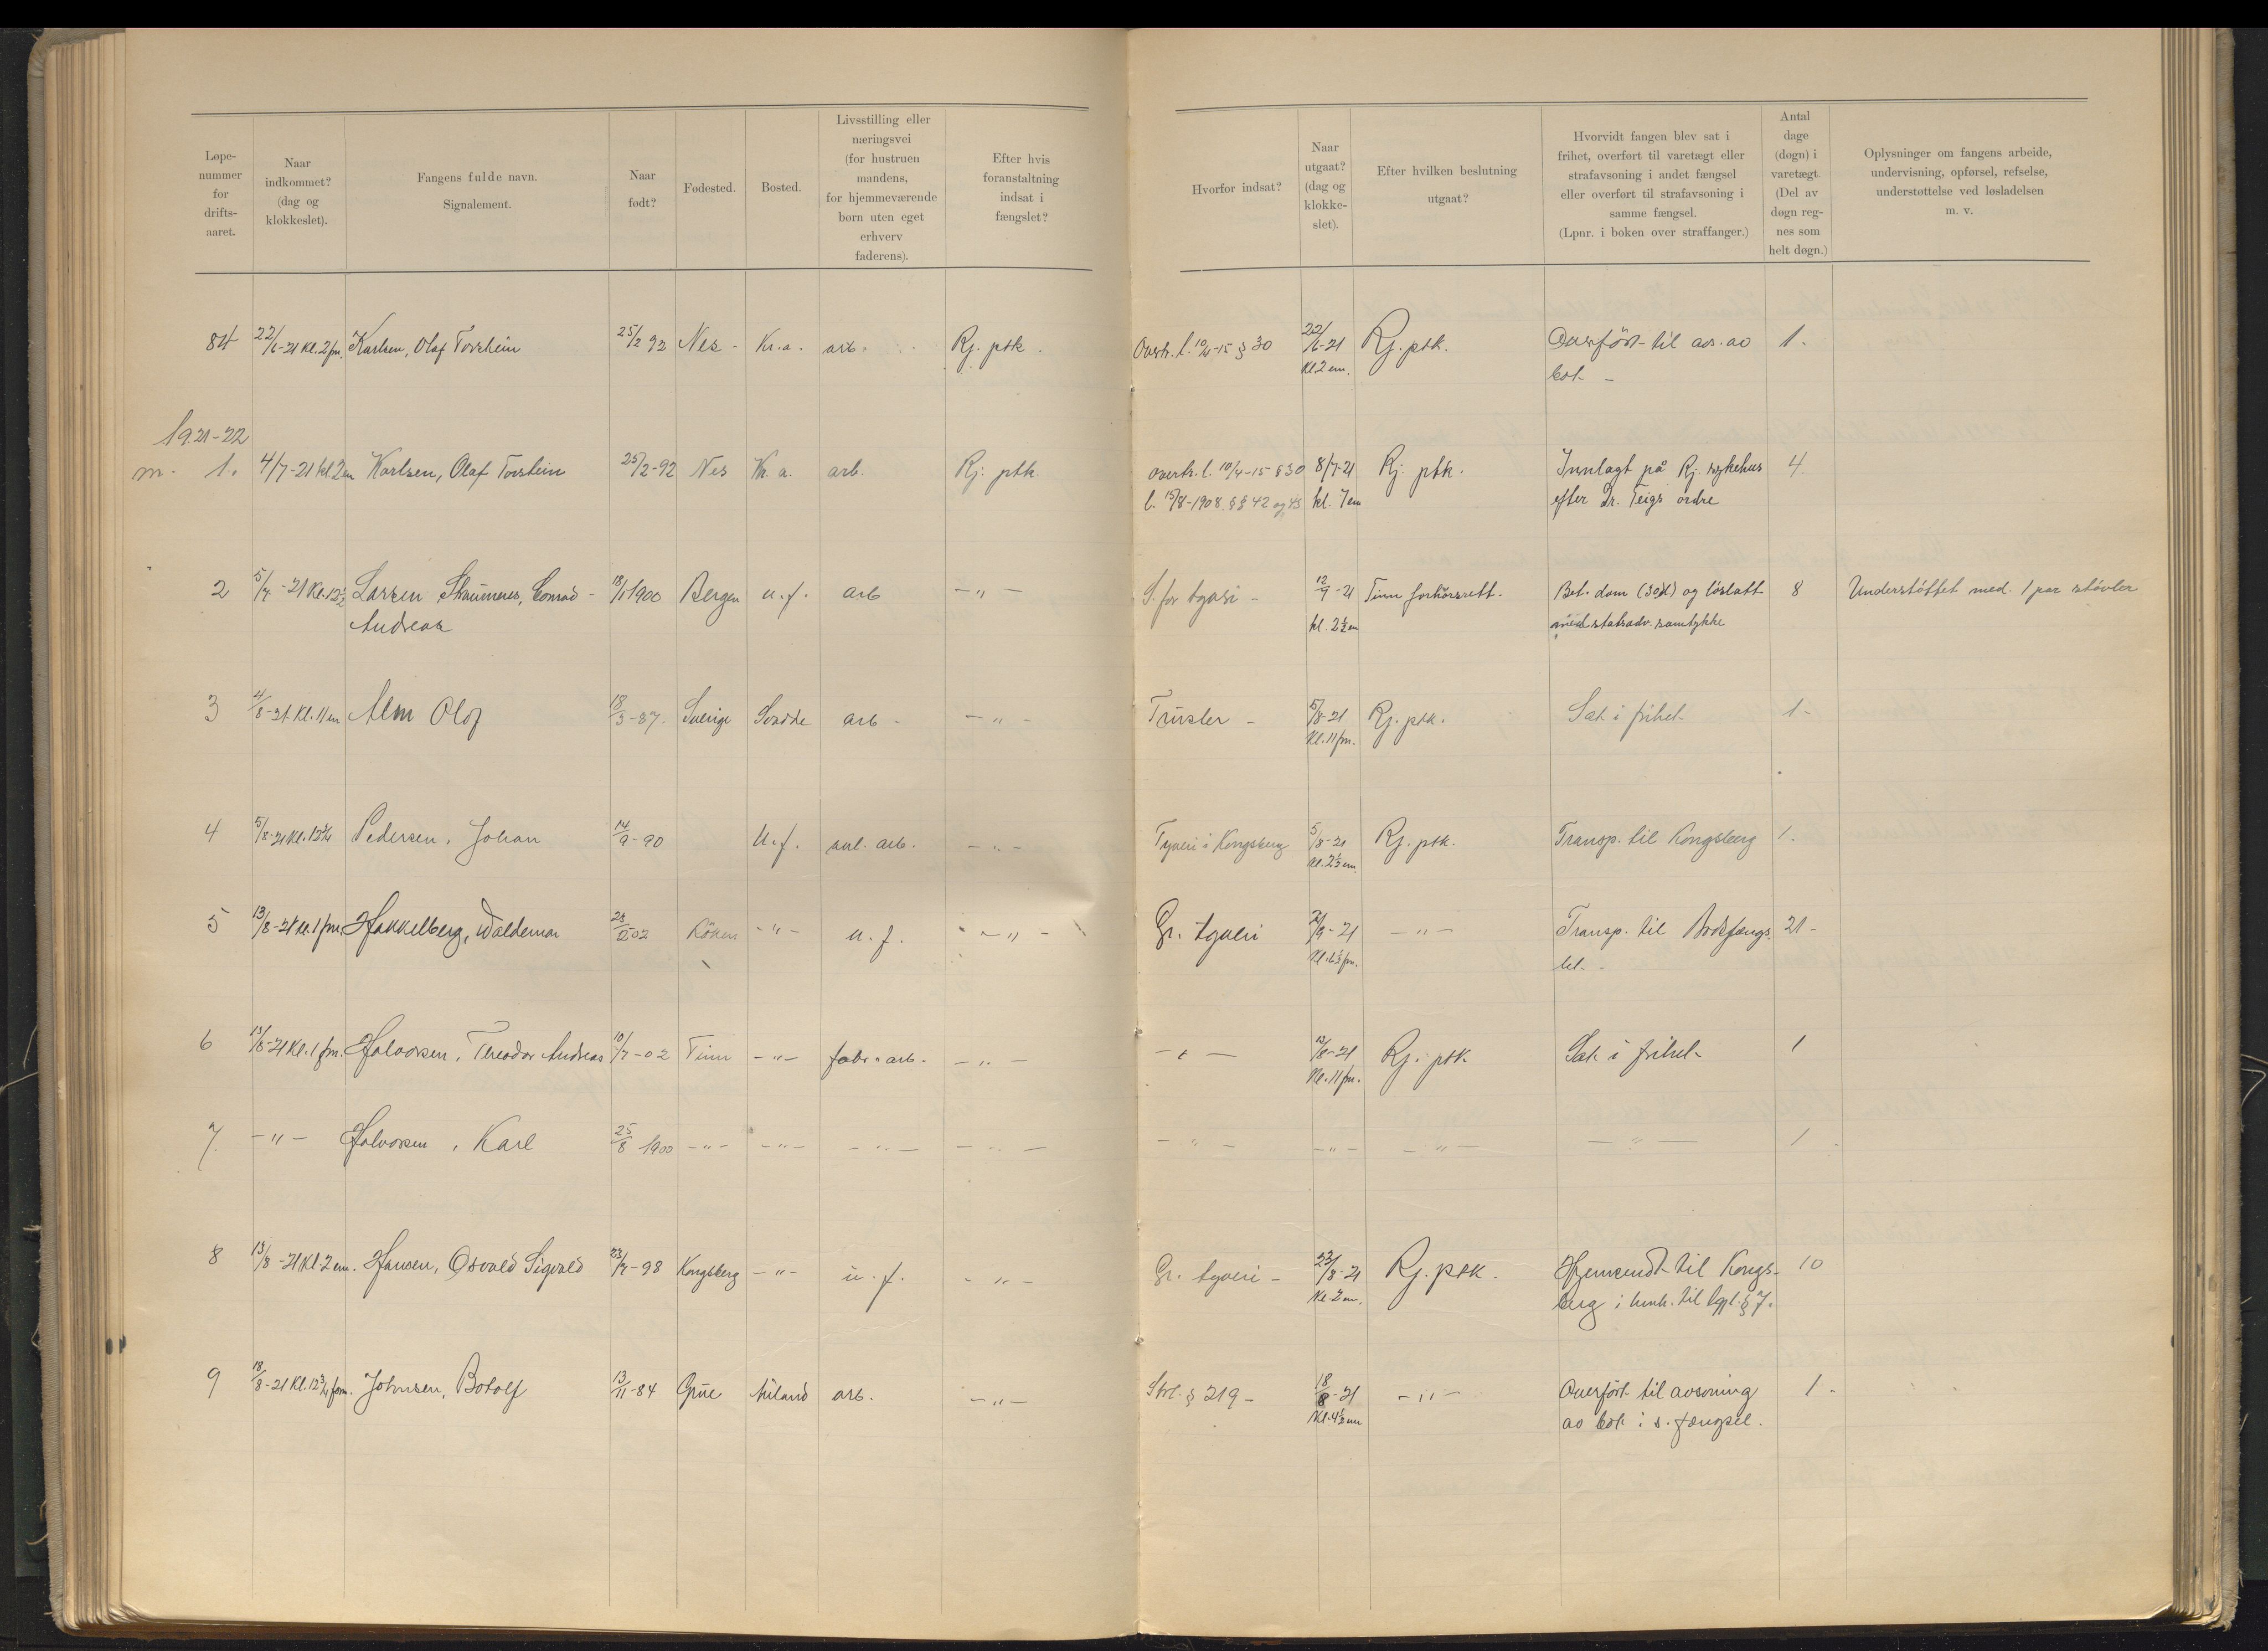 Løpe-
nummer
for
drifts-
aaret.
Naar
indkommet?
(dag og
klokkeslet).
Fangens fulde navn.
Signalement.
Naar
født?
Fødested.
Bosted.
Livsstilling eller
næringsvei
(for hustruen
mandens,
for hjemmeværende
børn uten eget
erhverv
faderens).
Efter hvis
foranstaltning
indsat i
fængslet?
Hvorfor indsat?
Naar
utgaat?
(dag og
klokke-
slet).
Efter hvilken beslutning
utgaat?
Hvorvidt fangen blev sat i
frihet, overført til varetægt eller
strafavsoning i andet fængsel
eller overført til strafavsoning i
samme fængsel.
(Lpnr. i boken over straffanger.)
Antal
dage
(døgn) i
varetægt.
(Del av
døgn reg-
nes som
helt døgn.)
Oplysninger om fangens arbeide,
undervisning, opførsel, refselse,
understøttelse ved løsladelsen
m. v.
84 22/6-21 Kl. 2 fm. Karlsen, Olaf Torstein 25/2 92 Nes - Kr.a. arb. Rj. ptk. Overtr. l. 10/4-15 § 30 22/6-21 Rj. ptk. Overført til avs. av 1.
Kl. 2 em. bot -
1921-22
m. 1. 4/7-21 kl. 2 em Karlsen, Olaf Torstein 25/2-92 Nes Kr. a. arb. Rj. ptk. overtr. l. 10/4-15 § 30 8/7-21 Rj. ptk. Innlagt på Rj. sykehus 4
l. 15/8-1908 §§ 42 og 45 kl. 7 em efter Dr. Teigs ordre
2 5/7-21 Kl. 12½ Larsen Straumenes, Conrad - 18/1 1900 Bergen u.f. arb -"- S. for tyveri - 12/7-21 Tinn forhörsrett. Bet. dom (30d) og löslatt 8 Understöttet med 1 par stövler
Andreas kl. 2½ em med statsadv. samtykke
3 4/8-21. Kl. 11 em Alm Olof 18/3-87. Sverige Svadde arb - -"- Trusler - 5/8-21 Rj. ptk. Sat i frihet 1-
Kl. 11 fm.
4 5/8-21 Kl. 12¾ Pedersen, Johan 14/9-90 U.f. anl. arb. -"- Tyveri i Kongsberg 5/8-21 Rj. ptk. Transp. til Kongsberg 1.
Kl. 2½ em.
5 13/8-21 Kl. 1 fm. Hakkelberg, Waldemar 02 Röken -"- u.f. -"- Gr. tyveri 2/9-21 -"- Transp. til Bodsfængs- 21-
let -
6 13/8-21 Kl. 1 fm. Halvorsen, Theodor Andreas 10/7-02 Tinn -"- fabr. arb. -"- -"- 13/8-21 Rj. ptk Sat i frihet 1
Kl. 11 fm.
7. -"- Halvorsen, Karl 25/8 1900 -"- -"- -"- -"- -"- -"- -"- -"- 1
8 13/8-21 Kl. 2 em. Hansen, Osvald Sigvald 23/7-98 Kongsberg -"- u.f. -"- Gr. tyveri - 22/8-21 Rj. ptk. Hjemsendt til Kongs- 10
Kl. 2 em. berg i henh. til lgpl. § 7.
9 18/8-21 Kl. 12¾ fm. Johnsen, Botolf 13/11-84 Grue Miland arb. -"- Strl. § 219 - 18/8-21 -"- Overfört til avsoning 1-
Kl. 4½ em av bot i s. fængsel.